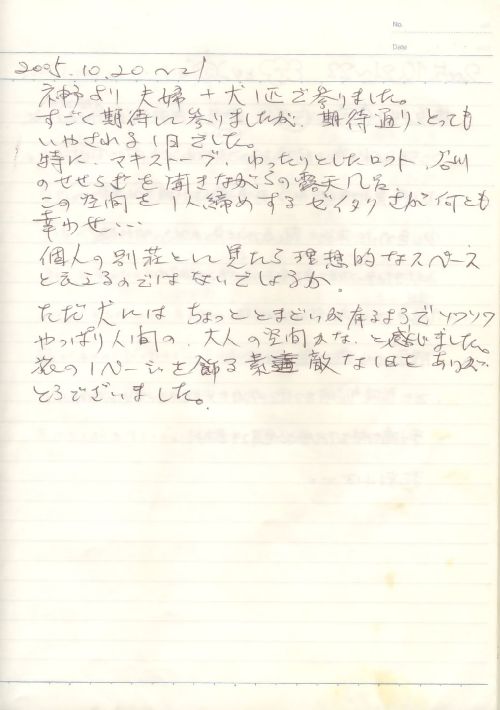 No.
Date
2005.10.20～21
神戸より 夫婦 + 犬1匹で参りました。
すごく期待して参りましたが、期待通り、とても
いやされる1日でした。
特に、マキストーブ、ゆったりとしたロフト、谷川
のせせらぎを聞きながらの露天風呂
この空間を1人締めするゼイタクさが何とも
幸わせ…
個人の別荘として見たら理想的なスペース
と言えるのではないでしょうか。
ただ犬には ちょっと とまどいが有るようでソワソワ
やっぱり人間の、大人の空間かな、と感じました。
秋の1ページを飾る素敵な1日をありが
とうございました。